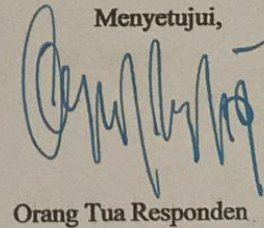 Menyetujui,
Orang Tua Responden